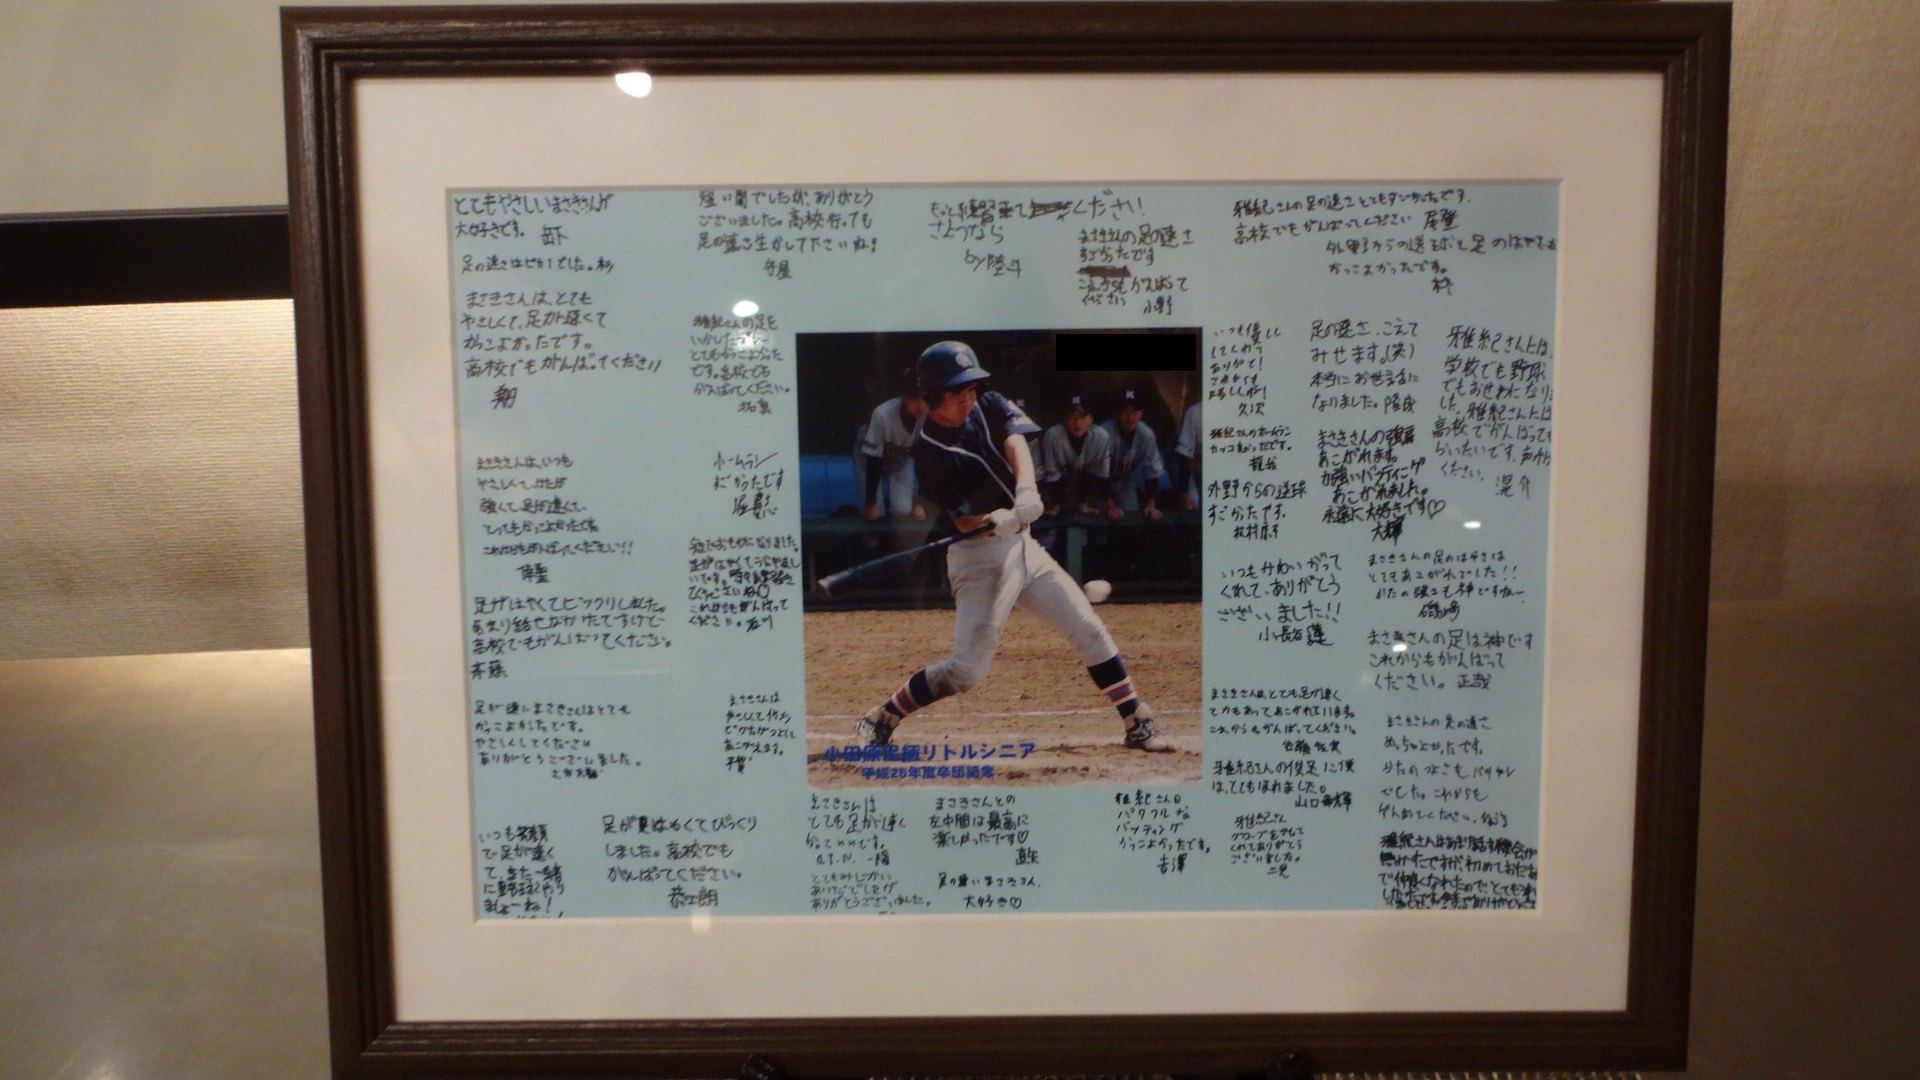 とてもやさしいまさきさんが
大好きです。
足の速さはピカ1でした。
まさきさんは、とても
やさしくて、足が速くて
かっこよかったです。
高校でもがんばってください
翔
まさきさんは、いつも
やさしくて、
強くて、足が速くて、
とってもかっこよかったです
これからもがんばってください!!
足がはやくてビックリしました。
あまり話せなかったですけど
高校でもがんばってください。
斉藤
足が速いまさきさんはとても
かっこよかったです。
やさしくしてくださり
ありがとうございました。
いつも笑顔
で足が速く
て、また一緒
に野球やり
ましょーね!
短い間でしたが、ありがとう
ございました。高校行っても
足の速さ生かして下さいね!
守屋
雅紀さんの足を
いかしたプレー
とてもかっこよかった
です。高校でも
がんばってください。
拓真
ホームラン
すごかったです
足がはやくてうらやまし
いです。
これからもがんばって
ください。石川
まさきさんは
やさしくて
あこがれます。
足が異様はやくてびっくり
しました。高校でも
がんばってください。
恭士朗
もっと練習来てください
さようなら
by 陸斗
まさきさんの足の速さ
すごかったです
これからもがんばって
ください
小野
小田原足柄リトルシニア
平成25年度卒団記念
まさきさんは
とても足が速く
かっこいいです。
とてもみじかい
あいだでしたが
ありがとうございました。
まさきさんとの
左中間は最高に
楽しかったです♡
直矢
足の速いまさきさん、
大好き♡
雅紀さんの
パワフルな
バッティング
かっこよかったです。
吉澤
雅紀さんの足の速さとてもすごかったです。
高校でもがんばってください
外野からの送球と足のはやさ
かっこよかったです。
いつも優しく
してくれて
ありがとう!
久次
雅紀さんのホームラン
カッコ良かったです。
外野からの送球
すごかったです。
足の速さ、こえて
みせます。(笑)
本当にお世話に
なりました。隆成
まさきさんの強肩
あこがれます。
力強いバッティング
あこがれました。
永遠に大好きです♡
大輝
雅紀さんには、
学校でも野球
でもお世わになりま
した。雅紀さんには
高校でがんばっても
らいたいです。
ください。
滉介
いつもかわいがって
くれて、ありがとう
ございました!!
小長谷 蓮
まさきさんの足のはやさは
とてもあこがれでした!!
かたの強さも神ですねー
磯崎
まさきさんの足は神です
これからもがんばって
ください。正哉
まさきさんは、とても足が速く
て力もあってあこがれています。
これからもがんばってください。
雅紀さんの俊足に僕
は、とてもほれました。
雅紀さん
グローブをかして
くれてありがとう
ございました。
二見
まさきさんの足の速さ
めっちゃよかったです。
かたのつよさもバツグン
でした。これからも
がんばってください。
雅紀さんはあまり話す機会が
無かったですが、初めておだわら
で仲良くなれたのでとても楽し